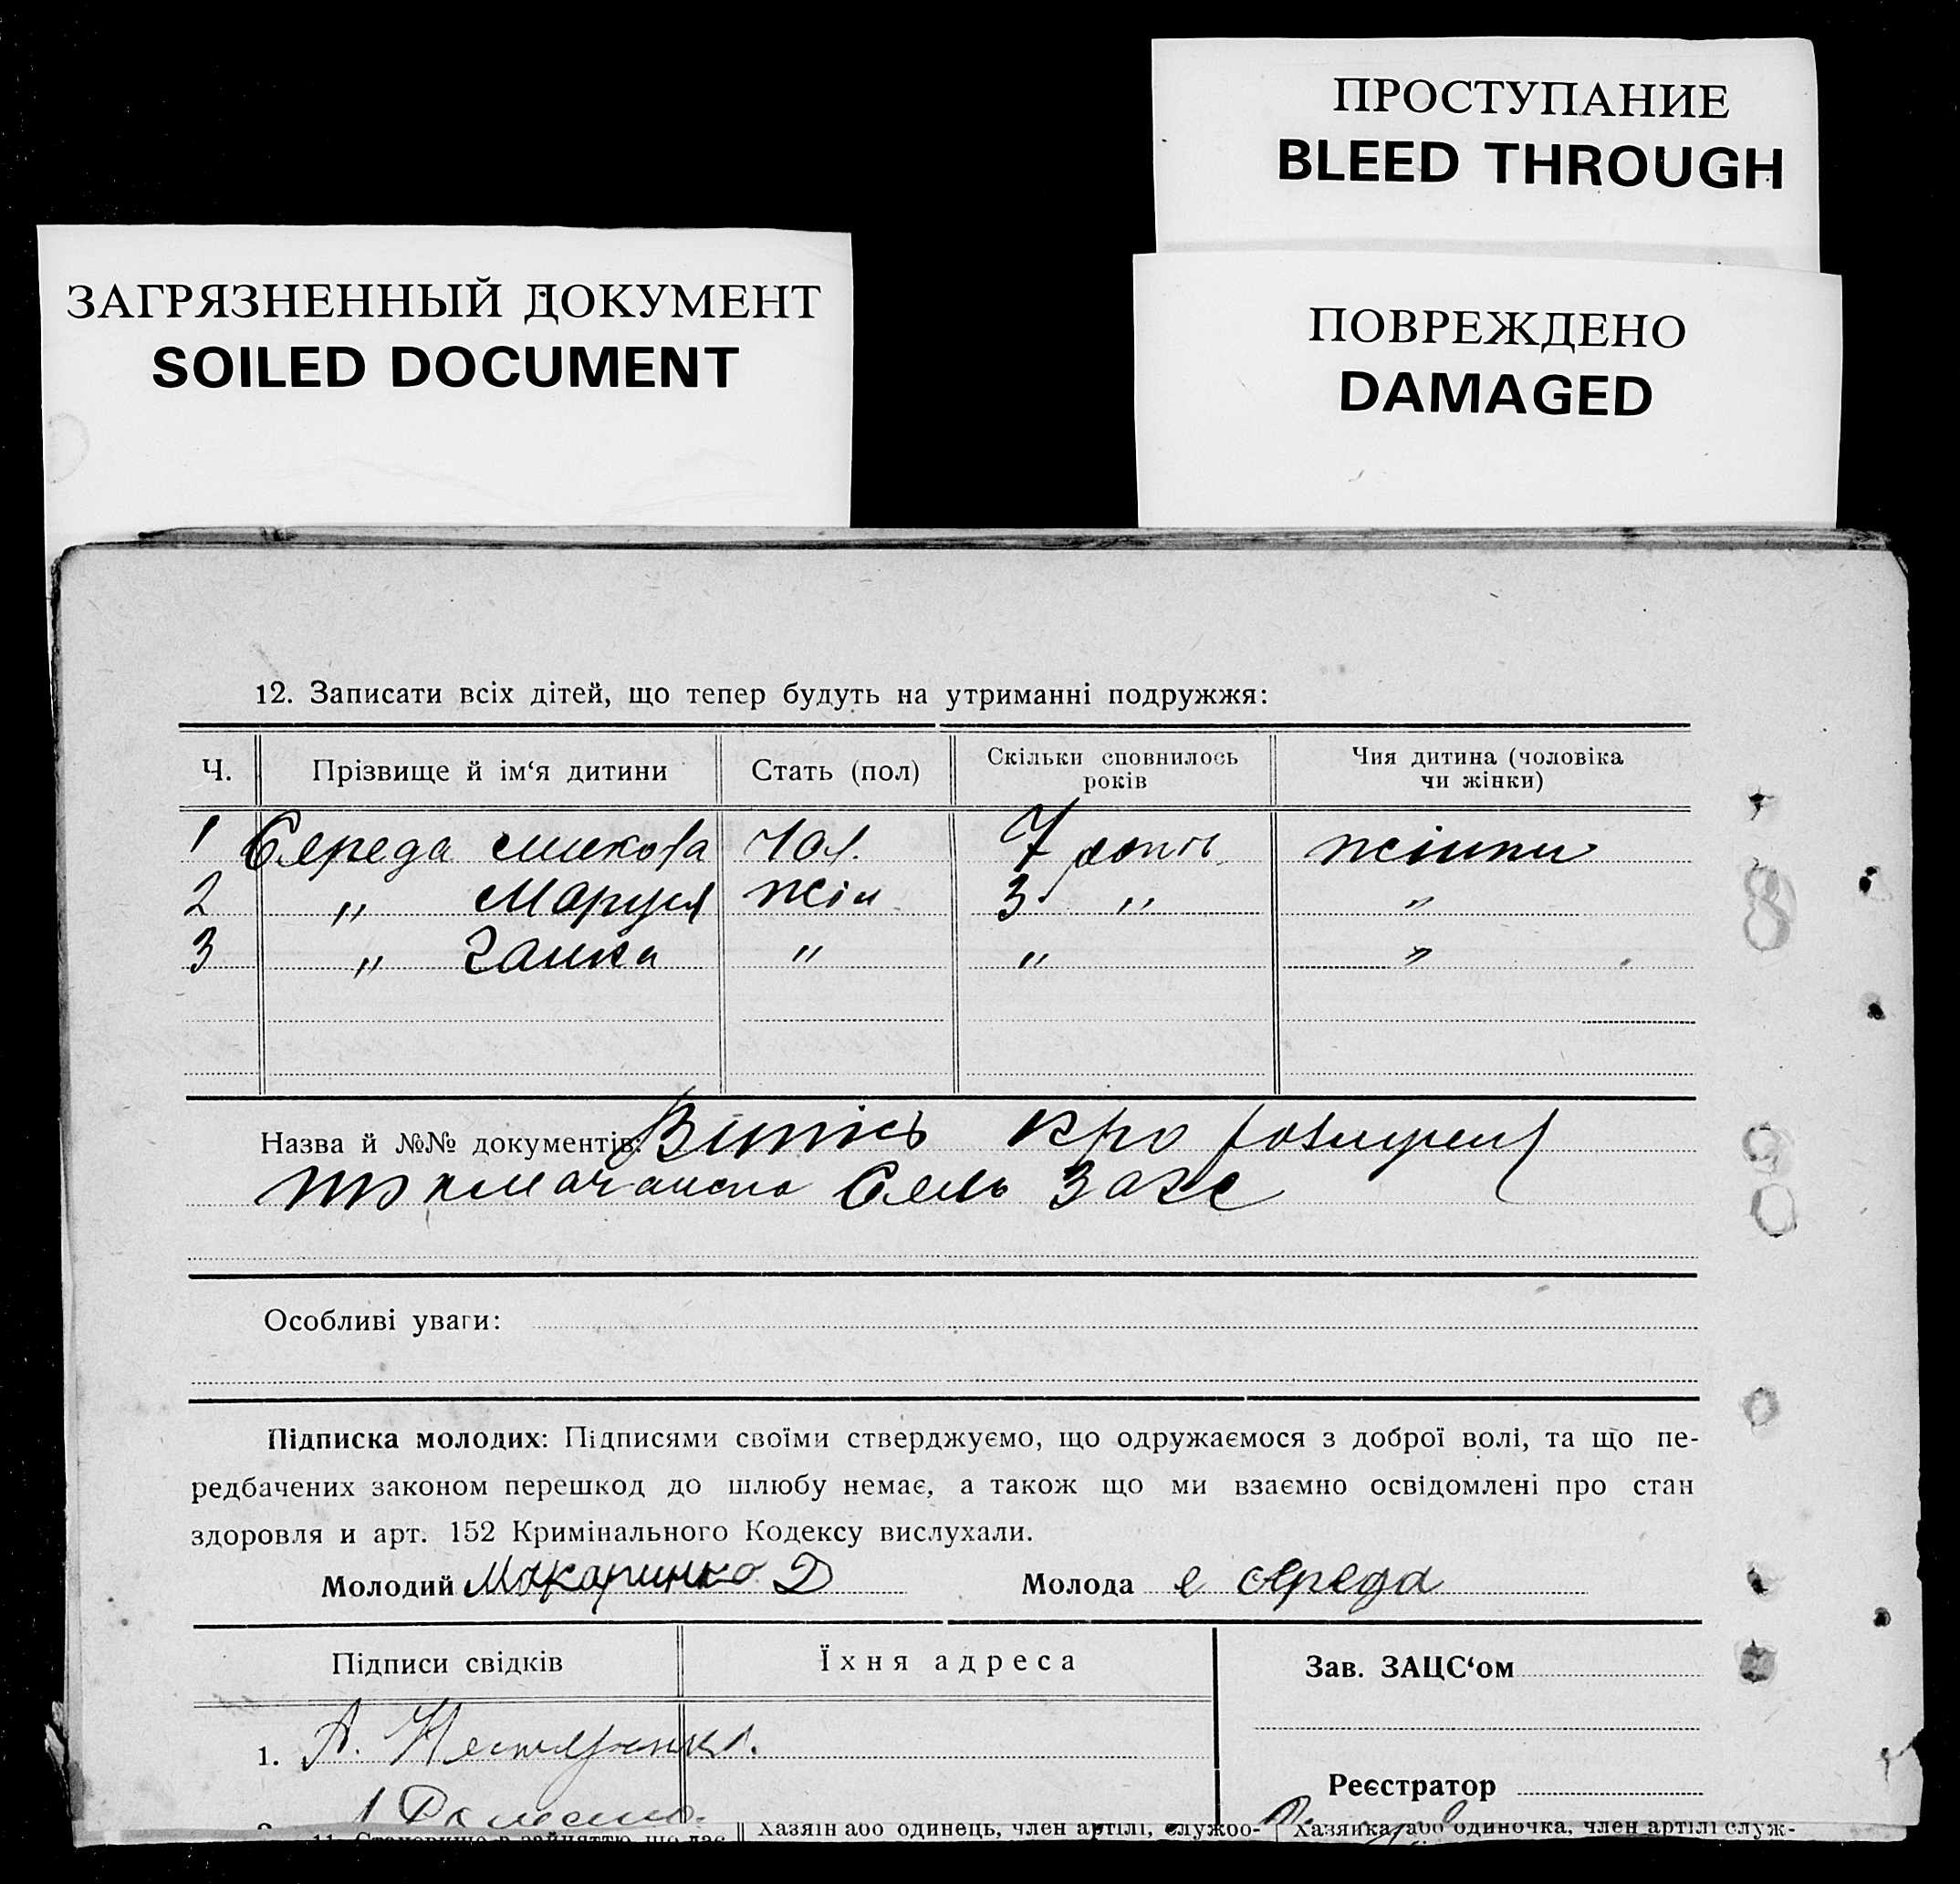 ПРОСТУПАНИЕ
BLEED THROUGH
ЗАГРЯЗНЕННЫЙ ДОКУМЕНТ
SOILED DOCUMENT
ПОВРЕЖДЕНО
DAMAGED
12. Записати всіх дітей, що тепер будуть на утриманні подружжя:
Ч. Прізвище й ім‘я дитини Стать (пол) Скільки сповнилось років Чия дитина (чоловіка чи жінки)
1 Середа Микола Чол. 7 жінки
2 " Маруся жін 3 " "
3 " Ганна " " "
Назва й №№ документів: про
Сель Загс
Особливі уваги:
Підписка молодих: Підписями своїми стверджуємо, що одружаємося з доброї волі, та що пе-
редбачених законом перешкод до шлюбу немає, а також що ми взаємно освідомлені про стан
здоровля и арт. 152 Кримінального Кодексу вислухали.
Молодий Макаринко Д Молода е середа
Підписи свідків Їхня адреса Зав. ЗАЦС‘ом
1. А. Нестеренко.
Реєстратор
11. Становище в зайняттю, що дає Хазяїн або одинець, член артілі, службо- Хазяйка, або одиночка, член артілі служ-